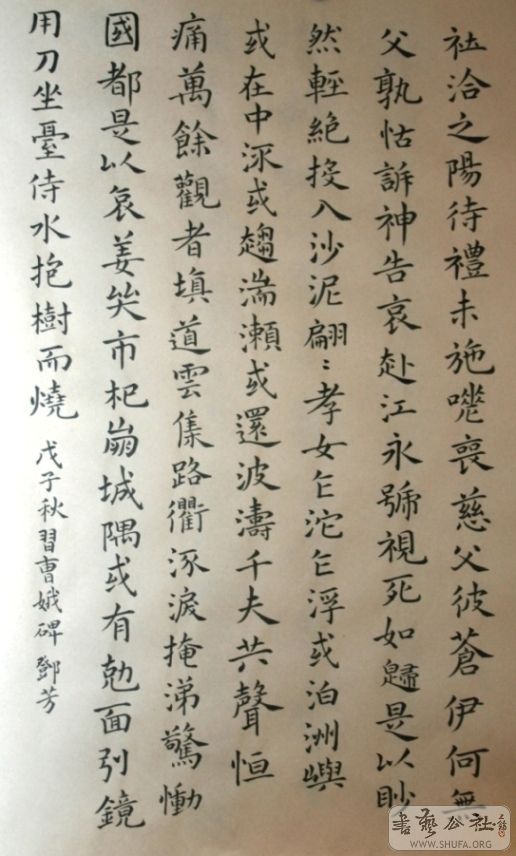 袪洽之陽待禮未施嗟喪慈父彼蒼伊何無
父孰怙訴神告哀赴江永號視死如歸是以眇
然輕絕投入沙泥翩〻孝女乍沈乍浮或泊洲嶼
或在中流或趨湍瀨或還波濤千夫共聲悼
痛萬餘觀者填道雲集路衢流淚掩涕驚慟
國都是以哀姜哭市杞崩城隅或有勊面引鏡
用刀坐臺待水抱樹而燒
戊子秋習曹娥碑鄧芳
書藝公社
WWW.SHUFA.ORG